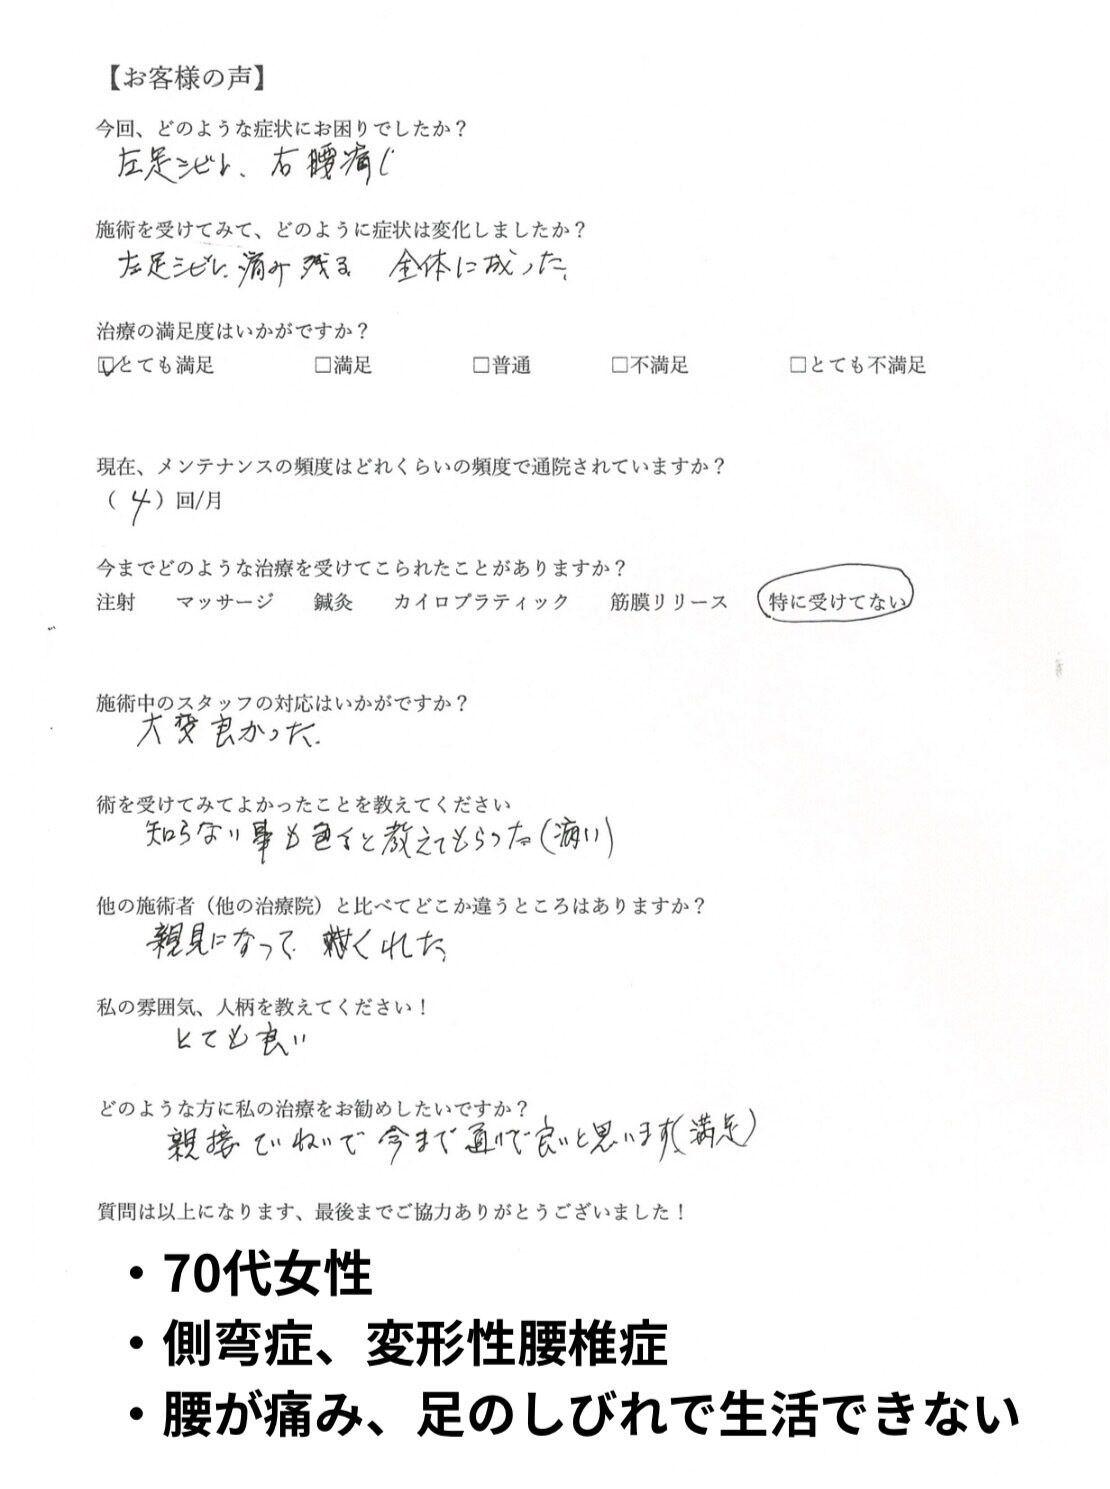 【お客様の声】
今回、どのような症状にお困りでしたか？
左足シビレ、右腰痛
施術を受けてみて、どのように症状は変化しましたか？
左足シビレ、痛み残る 全体に成った。
治療の満足度はいかがですか？
☑とても満足 □満足 □普通 □不満足 □とても不満足
現在、メンテナンスの頻度はどれくらいの頻度で通院されていますか？
（4）回/月
今までどのような治療を受けてこられたことがありますか？
注射 マッサージ 鍼灸 カイロプラティック 筋膜リリース 特に受けてない
施術中のスタッフの対応はいかがですか？
大変良かった.
術を受けてみてよかったことを教えてください
知らない事も色々と教えてもらった(痛い)
他の施術者（他の治療院）と比べてどこか違うところはありますか？
親見になって くれた、
私の雰囲気、人柄を教えてください！
とても良い
どのような方に私の治療をお勧めしたいですか？
親接 ていねいで 今まで 良いと思います(満足)
質問は以上になります、最後までご協力ありがとうございました！
・70代女性
・側弯症、変形性腰椎症
・腰が痛み、足のしびれで生活できない